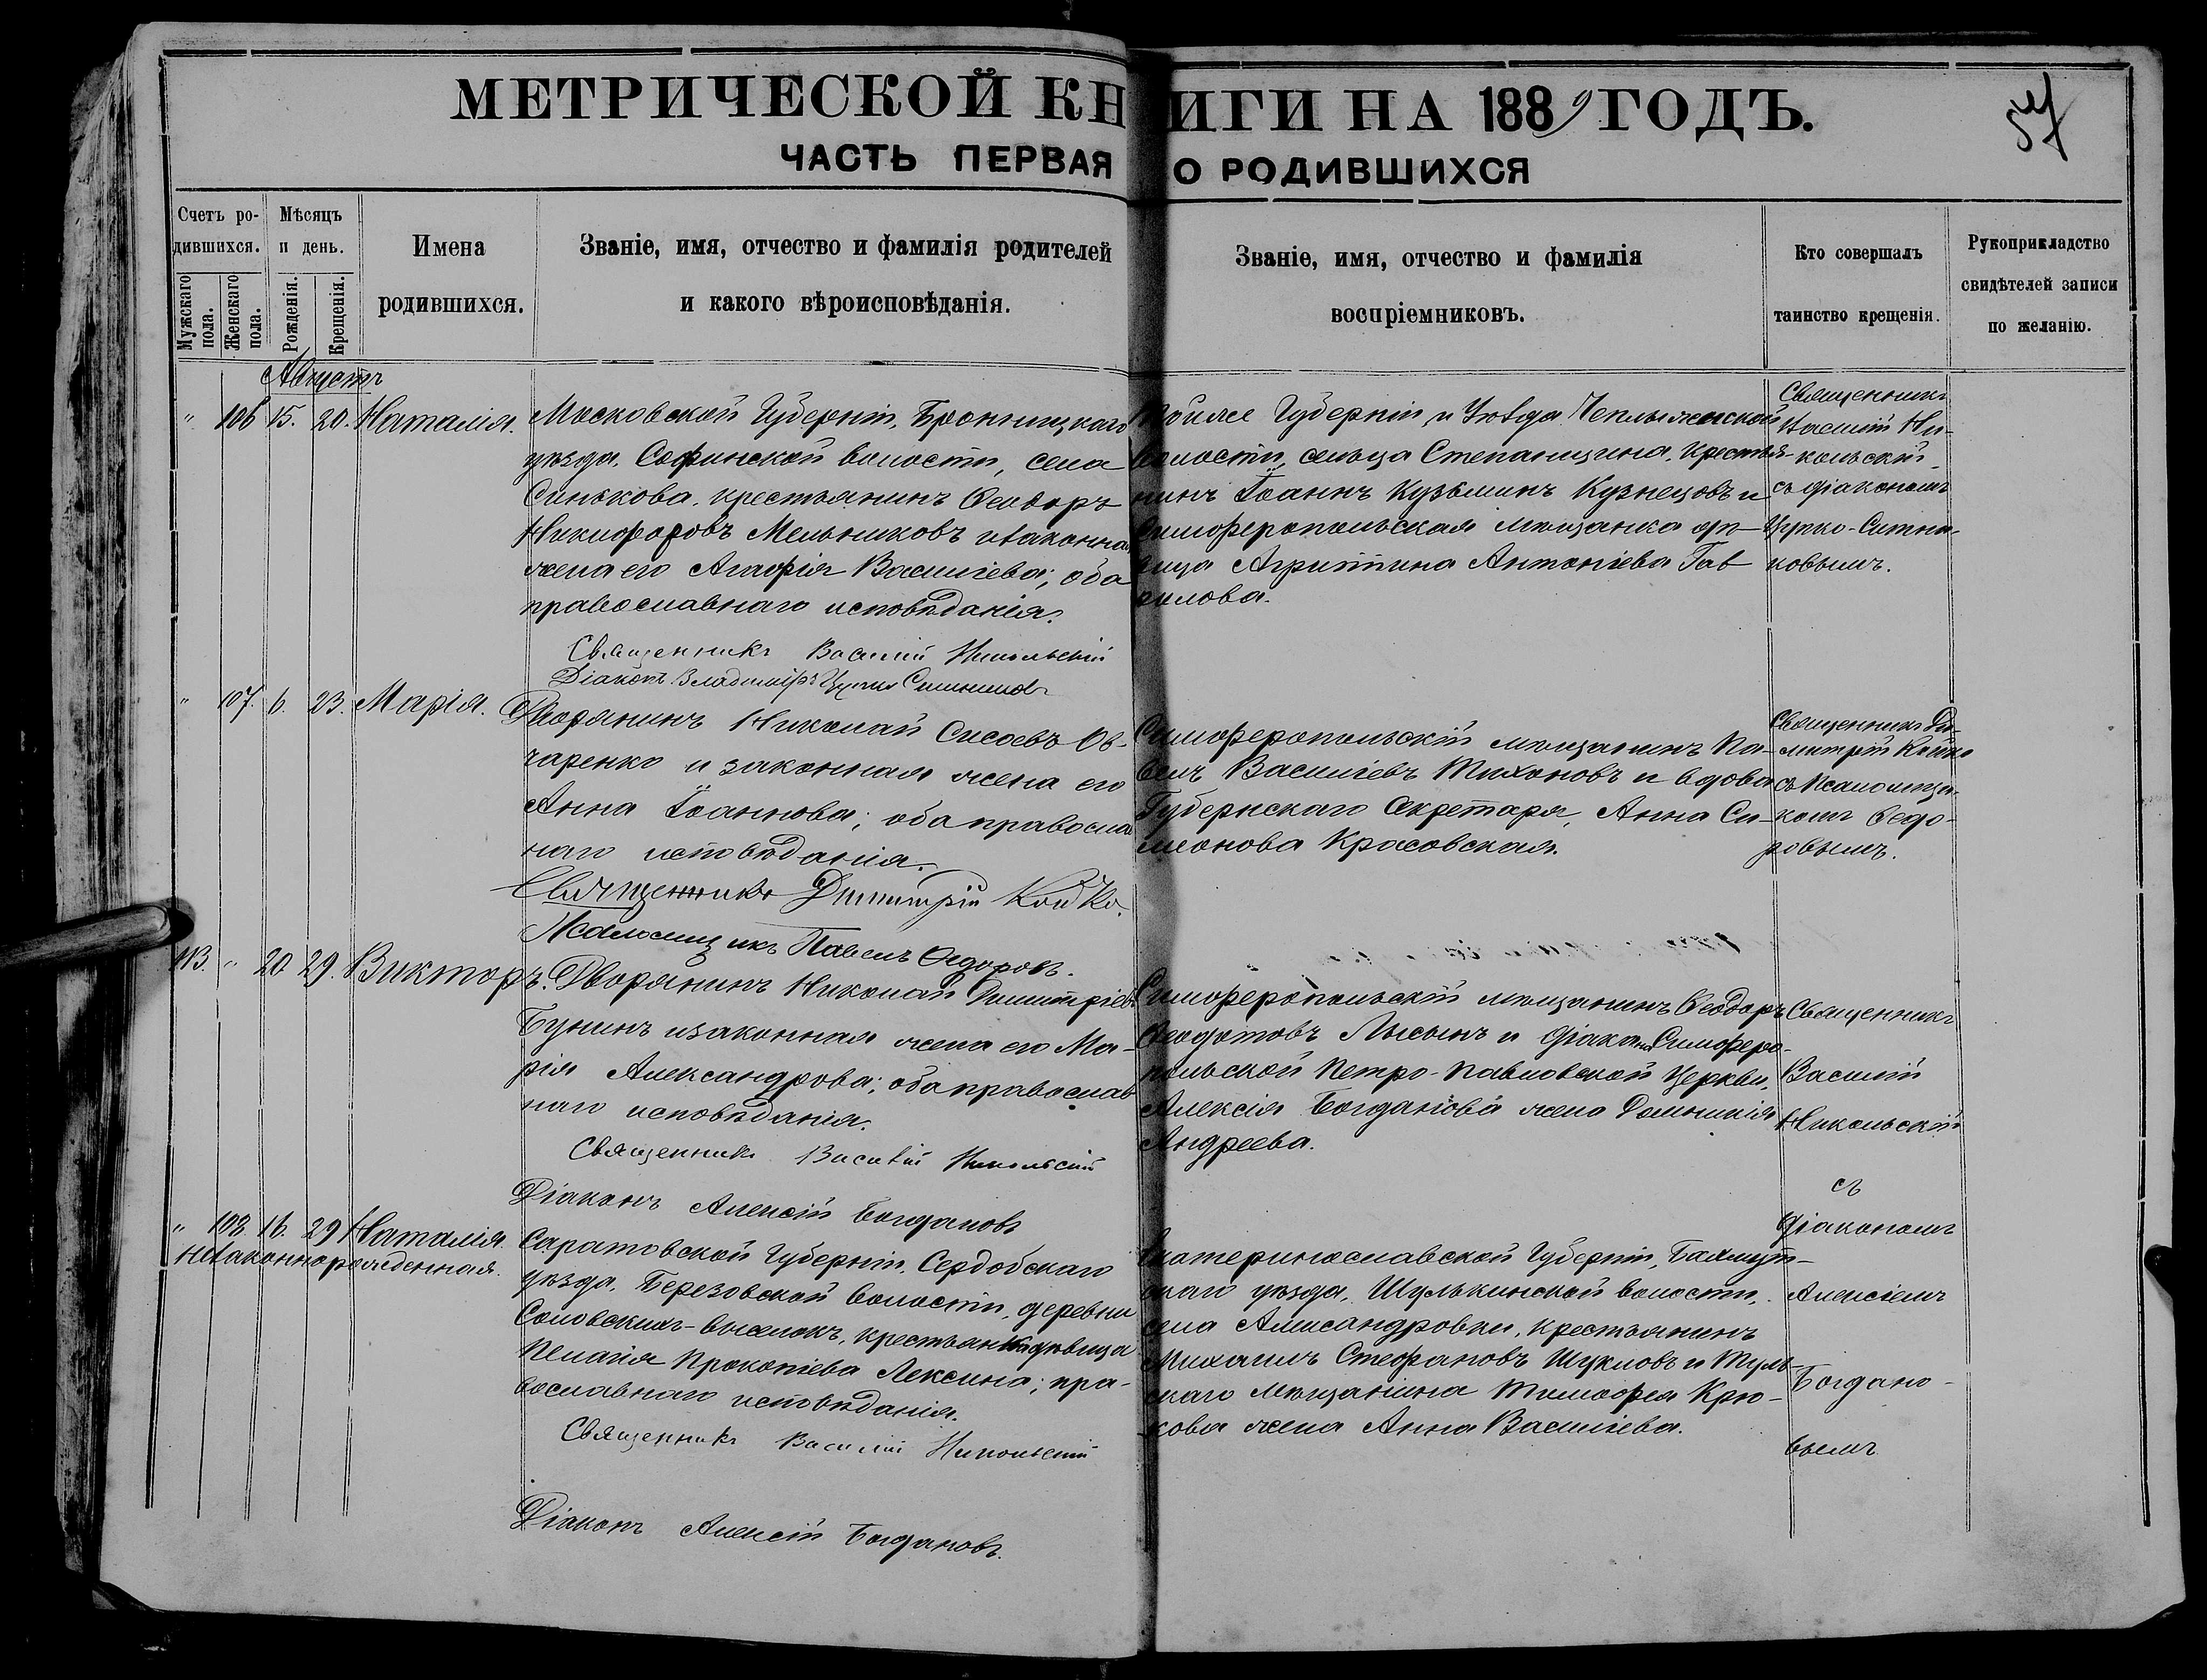 МЕТРИЧЕСКОЙ КНИГИ НА 1889 ГОДЪ.
57
ЧАСТЬ ПЕРВАЯ О РОДИВШИХСЯ
Счетъ ро-
дившихся.
Мужскаго пола.
Женскаго пола.
Мѣсяцъ
и день.
Рожденія.
Крещенія.
Имена
родившихся.
Званіе, имя, отчество и фамилія родителей
и какого вѣроисповѣданія.
Званіе, имя, отчество и фамилія
воспріемниковъ.
Кто совершалъ
таинство крещенія.
Рукоприкладство
свидѣтелей записи
по желанію.
Августъ
" 106 15. 20. Наталія.
Московской Губерніи, Бронницкаго
уѣзда, Софинской волости, села
Синькова, крестьянинъ Ѳеодоръ
Никифоровъ Мельниковъ и законная
жена его Агафія Василіева; оба
православнаго исповѣданія.
Священникъ Василій Никольскій
Діаконъ Владиміръ Цупко Ситниковъ
Губерніи и Уѣзда
волости, сельца Степанщина, крестья-
нинъ Іоаннъ Кузьминъ Кузнецовъ и
Симферопольская мѣщанка дѣ-
вица Агриппина Антоніева Гав
рилова.
Священникъ
Василій Ни-
кольскій
съ діакономъ
Цупко-Ситни-
ковымъ.
" 107. 6. 23. Марія.
Дворянинъ Николай Сисоевъ Ов-
чаренко и законная жена его
Анна Іоаннова; оба правосла
наго исповѣданія.
Священникъ Димитрій Койко.
Псаломщикъ Павелъ Ѳедоровъ.
Симферопольскій мѣщанинъ Па-
велъ Василіевъ Тихоновъ и вдова
Губернскаго Секретаря, Анна Си-
меонова Красовская.
Священникъ Ди-
митрій Койко
съ Псаломщи-
комъ Ѳедо-
ровымъ.
113. " 20 29. Викторъ.
Дворянинъ Николай Димитріевъ
Бунинъ и законная жена его Ма-
рія Александрова; оба православ
наго исповѣданія.
Священникъ Василій Никольскій
Діаконъ Алексій Богдановъ
Симферопольскій мѣщанинъ Ѳеодоръ
Ѳеодотовъ Лысынъ и діакона Симферо-
польской Петро-Павловской Церкви,
Алексія Богданова жена Домникія
Андреева.
Священникъ
Василій
Никольскій
съ
діакономъ
Алексіемъ
Богдано-
вымъ
" 108 16. 29 Наталія.
Незаконнорожденная.
Саратовской Губерніи, Сердобскаго
уѣзда, Березовской волости, деревни
Соловскихъ-выселокъ, крестьянка дѣвица
Пелагія Прокопіева Лексина; пра-
вославнаго исповѣданія.
Священникъ Василій Никольскій
Діаконъ Алексій Богдановъ.
Екатеринославской Губерніи, Бахмут-
скаго уѣзда, Шулькинской волости,
села Александровки, крестьянинъ
Михаилъ Стефановъ Шукловъ и Туль-
скаго мѣщанина Тимофея Крю-
кова жена Анна Василіева.